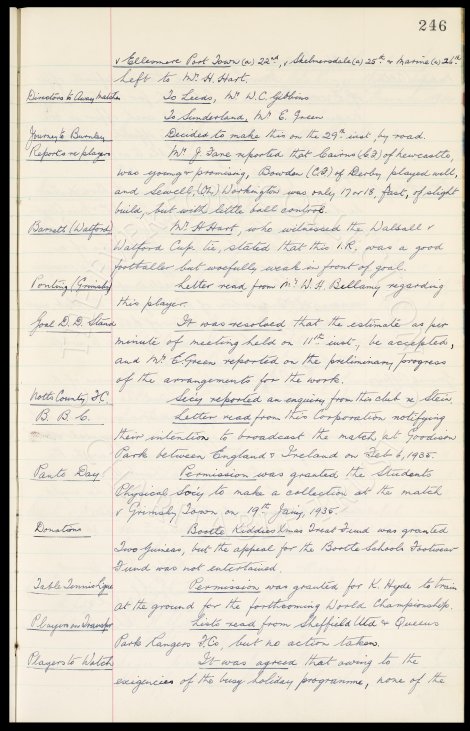 246
v Ellesmere Port Town (a) 22nd, v Skelmersdale (a) 25th & Marine (a) 26th
left to Mr. H. Hart.
Directors to Away Matches To Leeds, Mr. W. C. Gibbins
To Sunderland, Mr. E. Green
Journey to Burnley Decided to make this on the 29th inst. by road.
Reports re players Mr. J. Fare reported that Cairns (C.F.) of Newcastle,
was young & promising, Bowden (C.F.) of Derby played well,
and Sewell, Workington was only 17 or 18, fast, of slight
build, but with little ball control.
Barnett (Watford) Mr. H Hart, who witnessed the Walsall v
Watford Cup tie, stated that this I.R. was a good
footballer but woefully weak in front of goal.
Ponting (Grimsby) Letter read from Mr. W. H. Bellamy regarding
this player.
Goal D. D. Stand It was resolved that the estimate as per
minute of meeting held on 11th inst., be accepted,
and Mr. E. Green reported on the preliminary progress
of the arrangements for the work.
Notts County F.C. Secy reported an enquiry from this club re Stein.
B. B. C. Letter read from this Corporation notifying
their intention to broadcast the match at Goodison
Park between England & Ireland on Feb 6, 1935.
Panto Day Permission was granted the Students
Physical Socy to make a collection at the match
v Grimsby Town on 19th Jany, 1935.
Donations Bootle Kiddies Xmas Treat Fund was granted
Two Guineas, but the appeal for the Bootle Schools Footwear
Fund was not entertained.
Table Tennis Lgue Permission was granted for K. Hyde to train
at the ground for the forthcoming World Championships.
Players on Transfer Lists read from Sheffield Utd & Queens
Park Rangers F.Cs, but no action taken.
Players to Watch It was agreed that owing to the
exigencies of the busy holiday programme, none of the